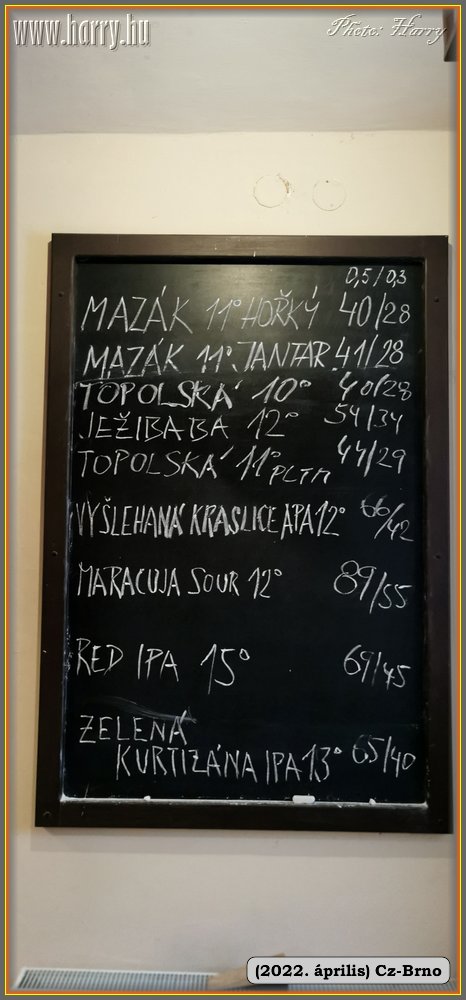 www.harry.hu
Photo: Harry
0,5/0,3
MAZÁK 11° HOŘKÝ 40/28
MAZÁK 11° JANTAR 41/28
TOPOLSKÁ 10° 40/28
JEŽIBABA 12° 54/34
TOPOLSKÁ 11° PLTM 44/29
VYŠLEHANÁ KRASLICE APA 12° 66/42
MARACUJA SOUR 12° 89/55
RED IPA 15° 69/45
ZELENÁ
KURTIZÁNA IPA 13° 65/40
(2022. április) Cz-Brno